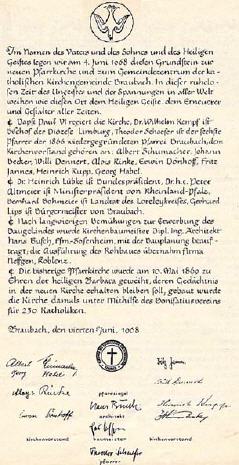 Im Namen des Vaters und des Sohnes und des Heiligen
Geistes legen wir am 4. Juni 1968 diesen Grundstein zur
neuen Pfarrkirche und zum Gemeindezentrum der ka-
tholischen Kirchengemeinde Braubach. In dieser ruhelo-
sen Zeit des Ungeistes und der Spannungen in aller Welt
weihen wir diesen Ort dem Heiligen Geiste, dem Erneuerer
und Gestalter aller Zeiten.
Papst Paul VI regiert die Kirche, Dr. Wilhelm Kempf ist
Bischof der Diözese Limburg, Theodor Schaefer ist der sechste
Pfarrer der 1866 wiedergegründeten Pfarrei Braubach. Dem
Kirchenvorstand gehören an: Albert Schumacher, Johann
Becker, Willi Dennert, Alois Rinke, Erwin Dörrhoff, Fritz
Jannes, Heinrich Kupp, Georg Habel.
Dr. Heinrich Lübke ist Bundespräsident, Dr. h.c. Peter
Altmeier ist Ministerpräsident von Rheinland-Pfalz,
Bernhard Bohmeier ist Landrat des Loreleykreises, Gerhard
Lips ist Bürgermeister von Braubach.
Nach langwierigen Bemühungen zur Erwerbung des
Baugeländes wurde Kirchenbaumeister Dipl. Ing. Architekt
Hans Busch, Ffm.-Sossenheim, mit der Bauplanung beauf-
tragt; die Ausführung des Rohbaues übernahm Firma
Neffgen, Koblenz.
Die bisherige Pfarrkirche wurde am 10. Mai 1869 zu
Ehren der heiligen Barbara geweiht, deren Gedächtnis
in der neuen Kirche erhalten bleiben soll, gebaut wurde
die Kirche damals unter Mithilfe des Bonifatiusvereins
für 230 Katholiken.
Braubach, den vierten Juni, 1968
pfarrsiegel
architekt
kirchenvorstand
baumeister
kirchenvorstand
Theodor Schaefer
pfarrer